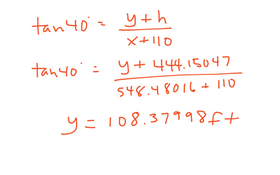 tan40° = y+h / x+110
tan40° = y+444.15047 / 548.48016 + 110
y = 108.37998ft